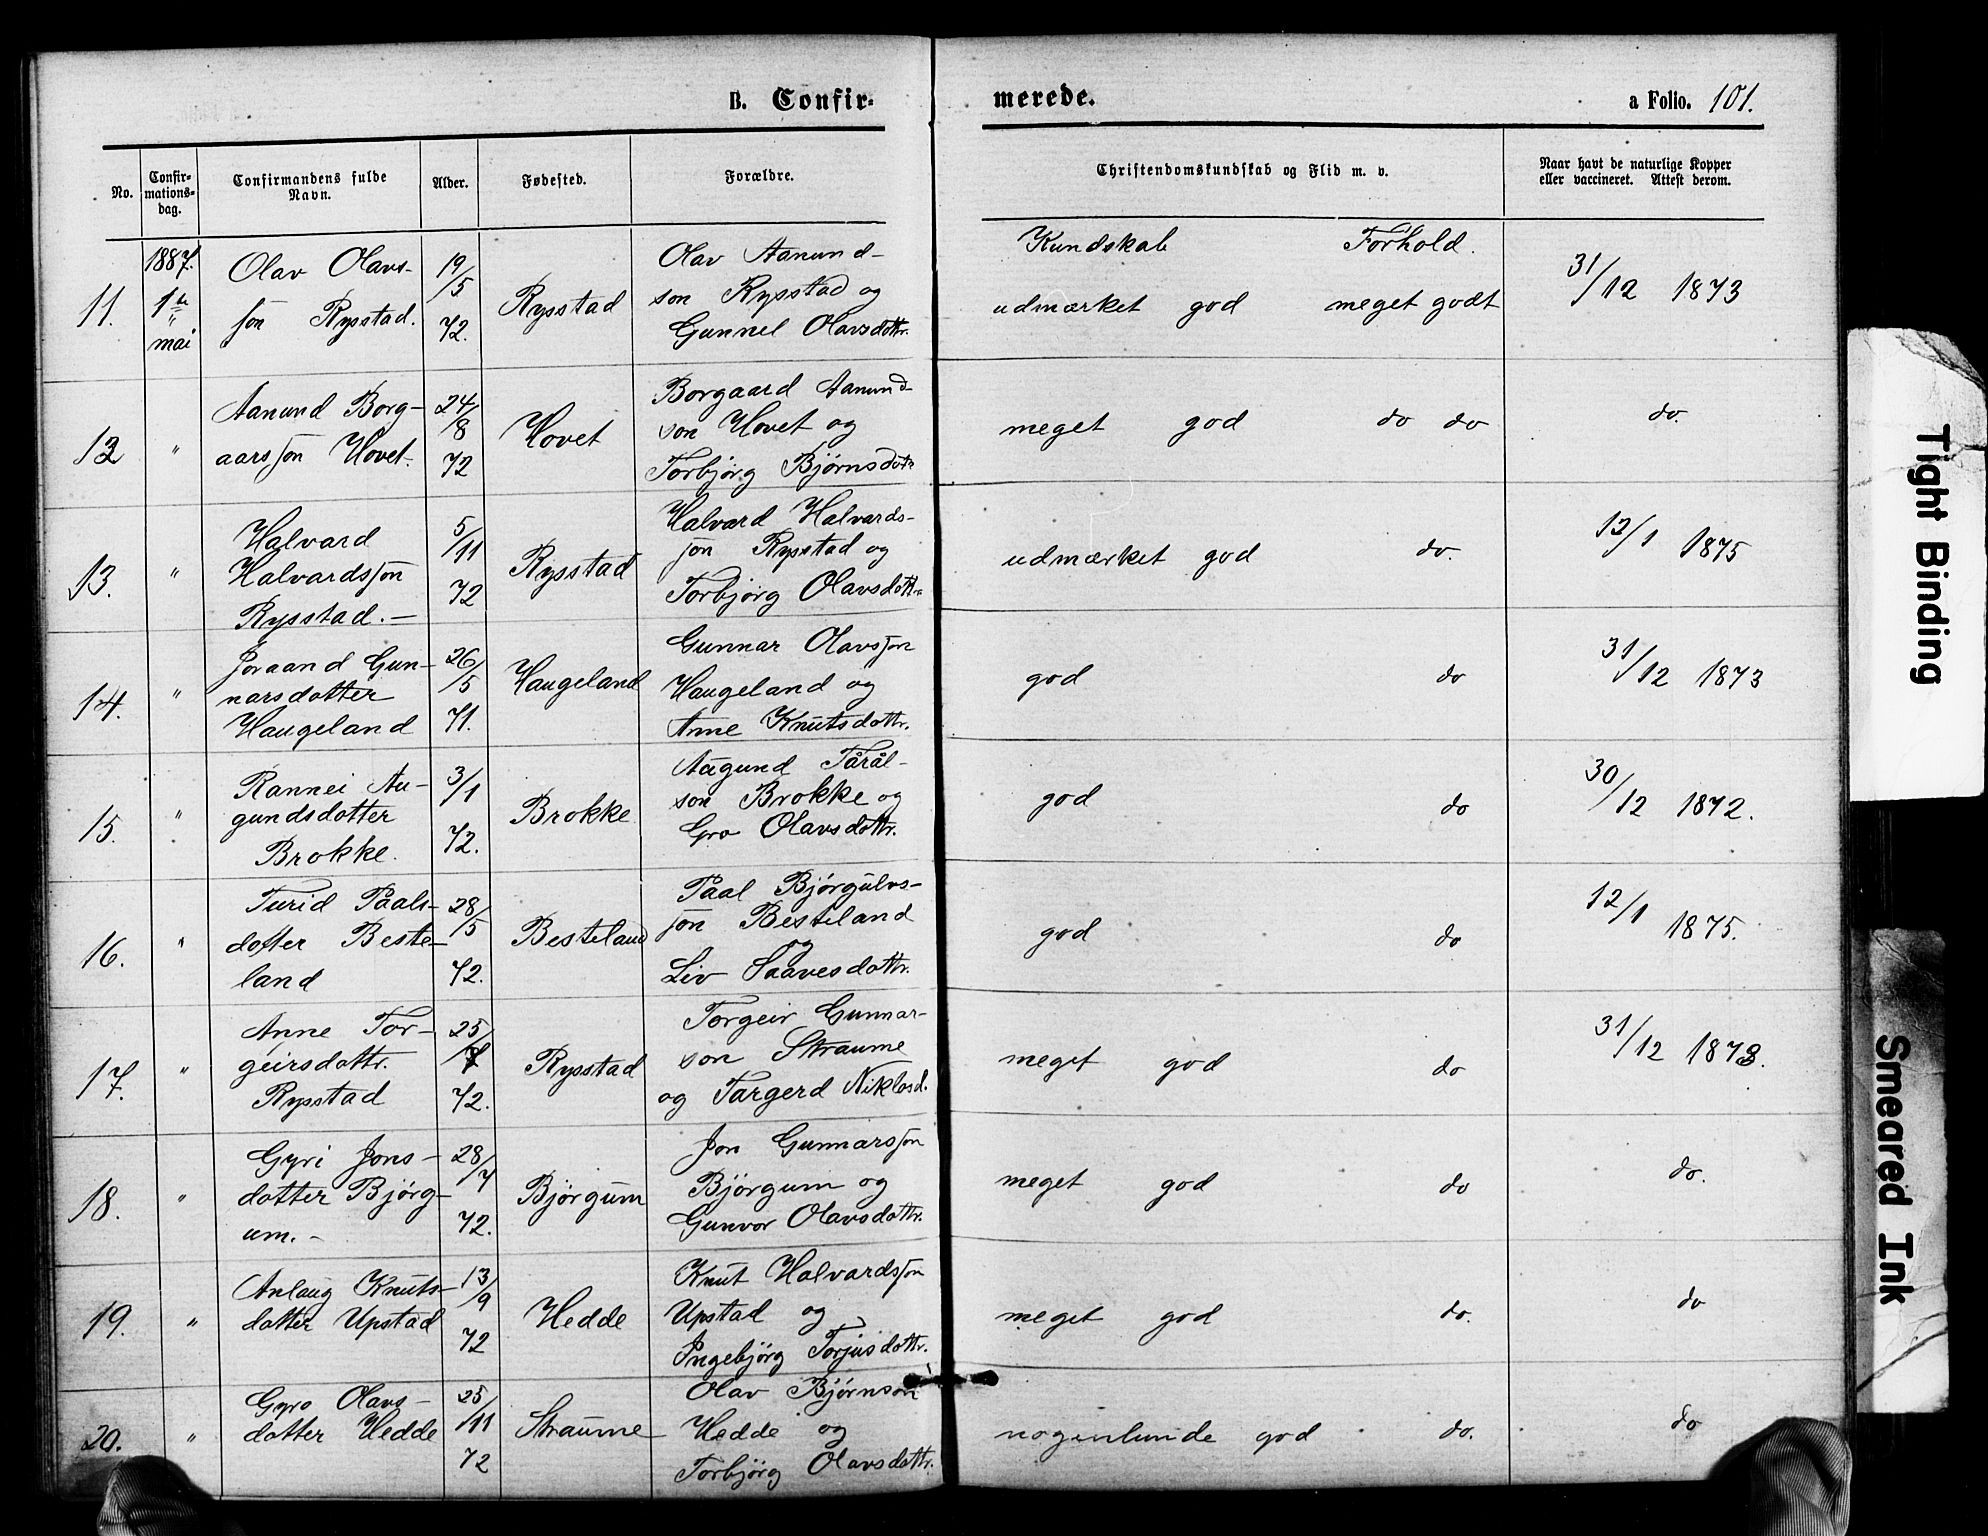 B. Confir-
merede.
a Folio. 101.
No.
Confir-
mations-
dag.
Confirmandens fulde
Navn.
Alder.
Fødested.
Forældre.
Christendomskundskab og Flid m. v.
Naar havt de naturlige Kopper
eller vaccineret. Attest derom.
Kundskab Forhold.
11.
1887.
1ste
mai
Olav Olavs-
son Rysstad.
19/5
72.
Rysstad
Olav Aanund-
son Rysstad og
Gunnel Olavsdottr.
udmærket god meget godt
31/12 1873
12
"
Aanund Borg-
aarsson Hovet.
24/8
72
Hovet
Borgaard Aanund-
son Hovet og
Torbjørg Bjørnsdotr
meget god do do
do.
13.
"
Halvard
Halvardsson
Rysstad. –
5/11
72
Rysstad
Halvard Halvards-
son Rysstad og
Torbjørg Olavsdottr.
udmærket god do.
12/1 1875
14.
"
Joraand Gun-
narsdotter
Haugeland
26/5
71.
Haugeland
Gunnar Olavsson
Haugeland og
Anne Knutsdottr.
god do
31/12 1873
15.
"
Rannei Au-
gundsdotter
Brokke.
3/1
72.
Brokke
Augund Tårål-
son Brokke og
Gro Olavsdottr.
god do
30/12 1872.
16.
"
Turid Paals-
dotter Beste-
land
28/5
72.
Besteland
Paal Bjørgulvs-
son Besteland
og
Liv Saavesdottr.
god do
12/1 1875.
17.
"
Anne Tor-
geirsdottr.
Rysstad
25/7
72.
Rysstad
Torgeir Gunnar-
son Straume
og Targerd Niklosd.
meget god do
31/12 1873.
18.
"
Gyri Jons-
dotter Bjørg-
um. –
28/7
72.
Bjørgum
Jon Gunnarsson
Bjørgum og
Gunvor Olavsdottr.
meget god do
do.
19.
"
Anlaug Knuts-
dotter Upstad
13/9
72
Hedde
Knut Halvardsson
Upstad og
Ingebjørg Torjusdottr.
meget god do.
do
20.
"
Gyro Olavs-
dotter Hedde
25/11
72
Straume
Olav Bjørnson
Hedde og
Torbjørg Olavsdottr.
nogenlunde god do.
do
Tight Binding
Smeared Ink